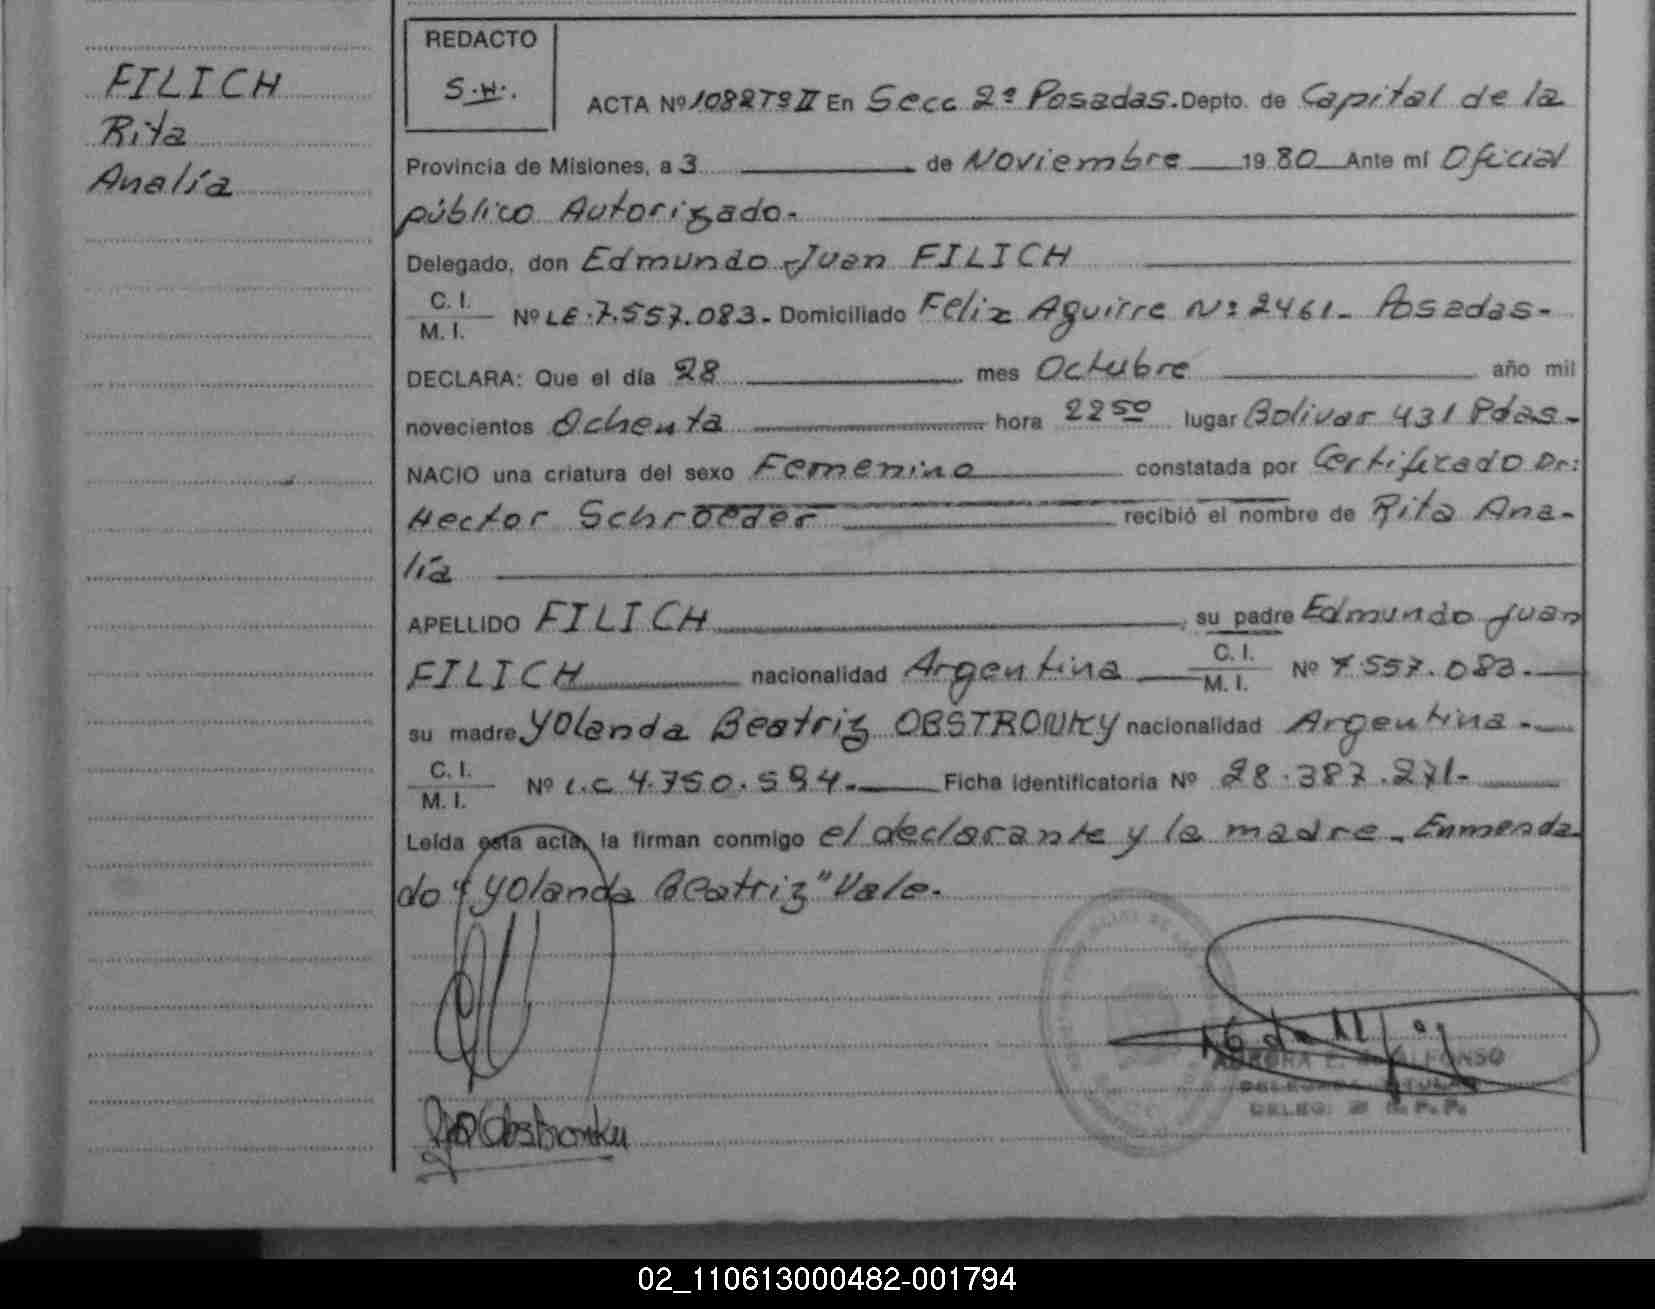 FILICH
Rita
Analía
REDACTO
S.H.
ACTA Nº 1082 Tº II En Secc 2º Posadas. Depto. de Capital de la
Provincia de Misiones, a 3 de Noviembre 19 80 Ante mí Oficial
público Autorizado.
Delegado, don Edmundo Juan FILICH
C. I.
M. I. Nº LE.7.557.083. Domiciliado Feliz Aguirre Nº 2461. Posadas.
DECLARA: Que el día 28 mes Octubre año mil
novecientos Ochenta hora 22 50 lugar Bolivar 431 Pdas.
NACIO una criatura del sexo Femenino constatada por Certificado Dr:
Hector Schroeder recibió el nombre de Rita Ana-
lía
APELLIDO FILICH, su padre Edmundo Juan
FILICH nacionalidad Argentina C. I. M. I. Nº 7.557.083.
su madre Yolanda Beatriz OBSTRONKY nacionalidad Argentina.
C. I.
M. I. Nº L.C 4.750.594. Ficha identificatoria Nº 28.387.271.
Leída esta acta, la firman conmigo el declarante y la madre. Enmenda
do "Yolanda Beatriz" Vale.
Obstronky
DELEGADA TITULAR
02_110613000482-001794